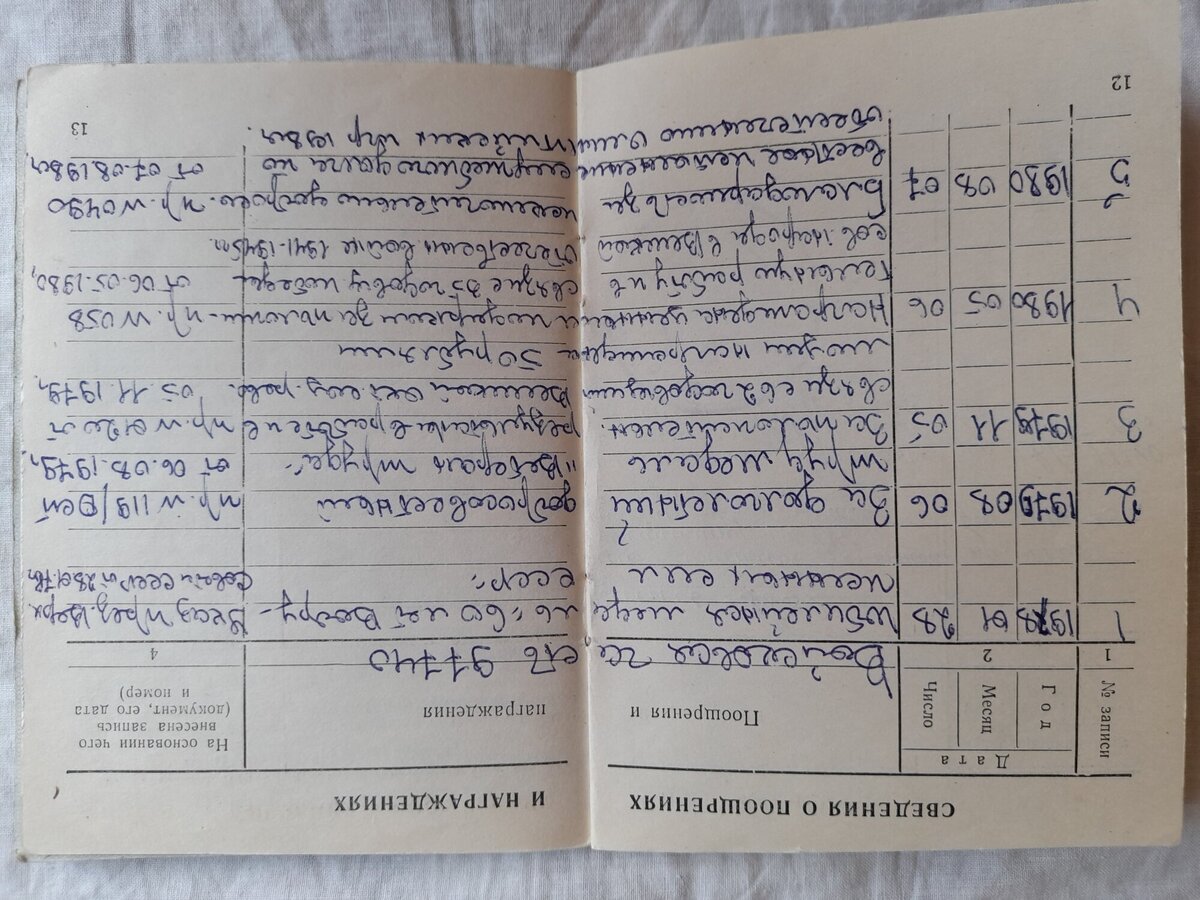 СВЕДЕНИЯ О ПООЩРЕНИЯХ И НАГРАЖДЕНИЯХ
№ записи
Дата
Год
Месяц
Число
Поощрения и награждения
На основании чего
внесена запись
(документ, его дата
и номер)
1 2 4
Войсковая ча сть
1 1978 01 28 Юбилейная меда ль "60 лет Воору- Указ През. Верх.
женных сил СССР" Совета СССР от 28.01.78г.
2 1979 08 06 За долголетний добросовестный пр. N 119/
труд медаль "Ветеран труда" от 06.08.1979г.
3 1979 11 05 За положительн. результаты в работе и в пр. N 0420 от
связи с 62 годовщиной Великой Окт. соц. рев. 05.11.1979г.
50 рублями
4 1980 05 06 Награждена ценным подарком за - пр. N 058
тельную работу и в связи с 35 годовщ. победы от 06.05.1980г.
сов. народа в Великой Отечественной войне 1941-1945гг.
5 1980 08 07 Благодарность за добросов. пр. N 0490
служебного долга по от 07.08.1980г.
обеспечению Олимпийских игр 1980г.
12
13